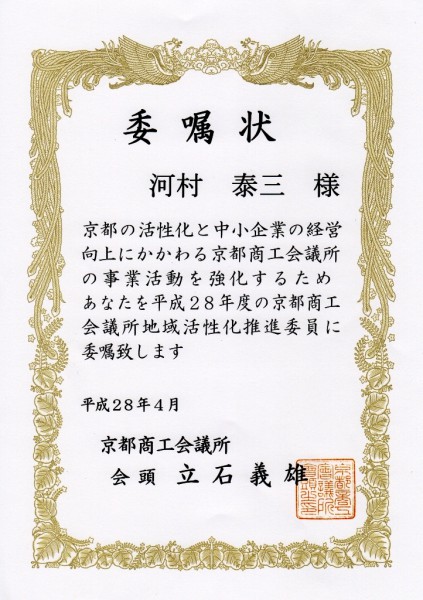 委嘱状
河村 泰三 様
京都の活性化と中小企業の経営
向上にかかわる京都商工会議所
の事業活動を強化するため
あなたを平成28年度の京都商工
会議所地域活性化推進委員に
委嘱致します
平成28年4月
京都商工会議所
会頭 立石義雄